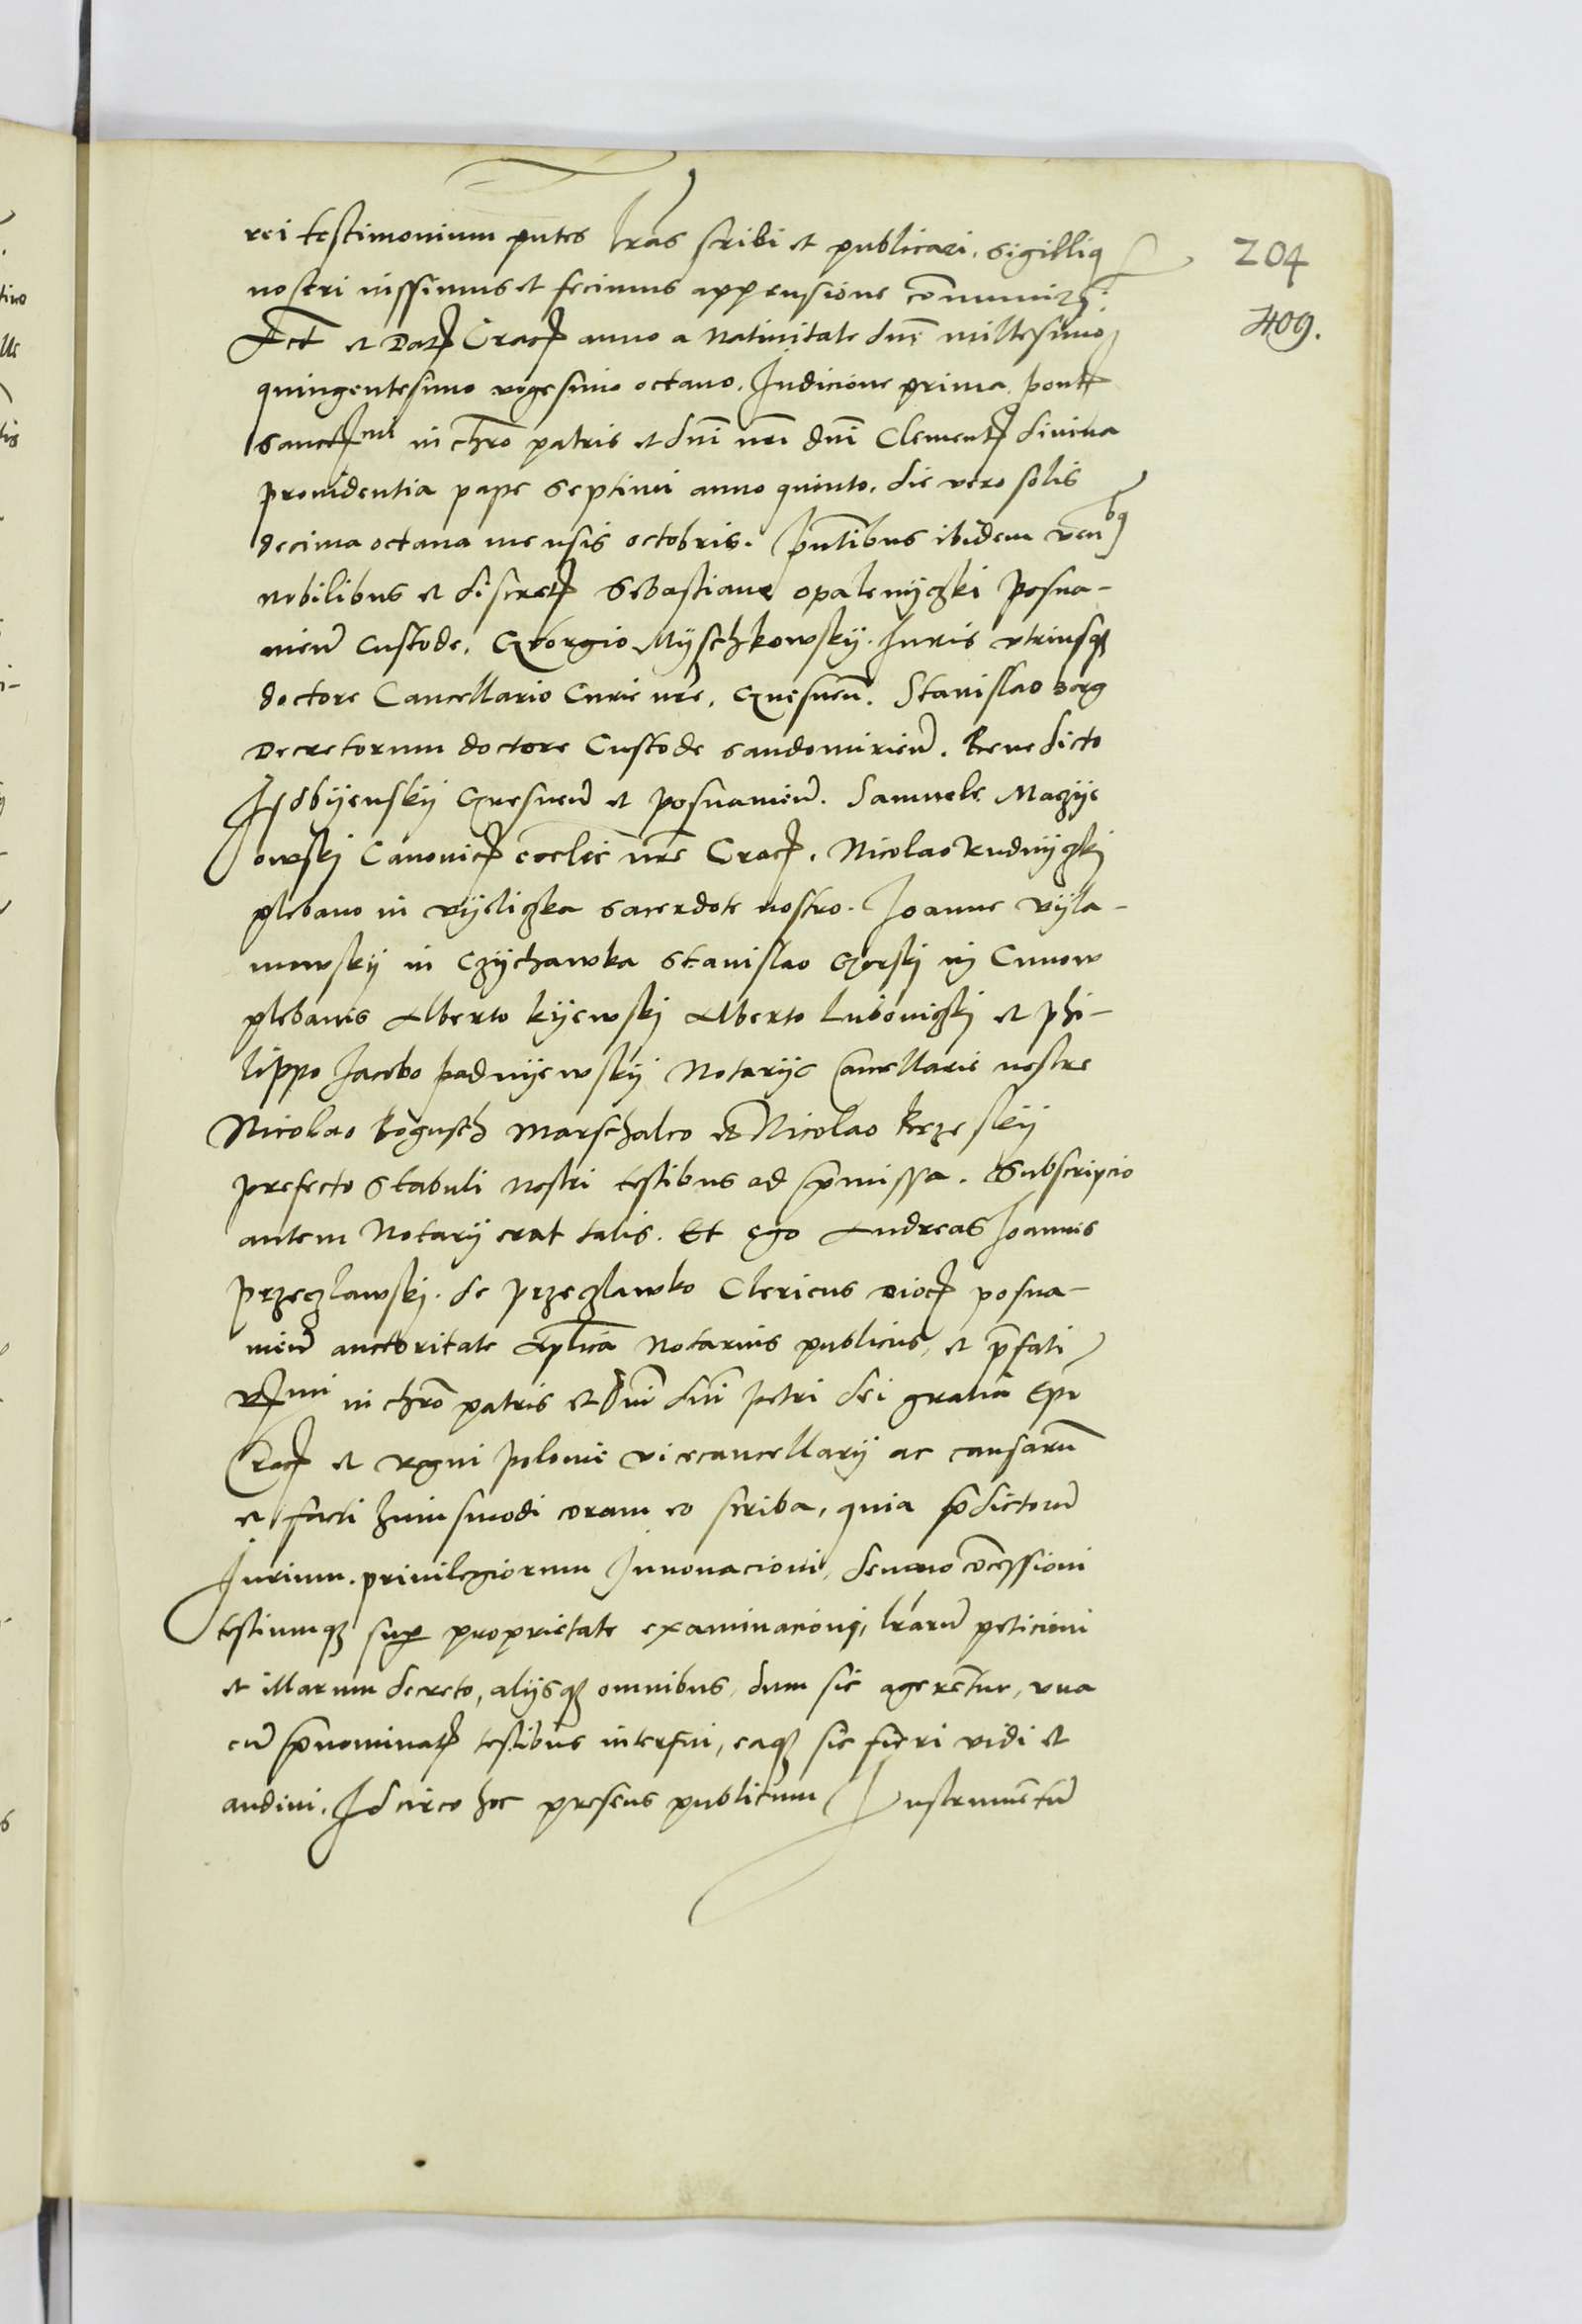 rei testimonium pntes lras scribi et publicari. sigilliq
nostri iussimus et fecimus appensione communiri.
Act et Dat Crac anno a Natiuitate dni millesimo
quingentesimo vigesimo octauo. Indicione prima pont
sanctmi in chro patris et dni nri dni Clement diuina
prouidentia pape septimi anno quinto. die vero solis
decima octaua mensis octobris. pntibus ibidem ven bq
nobilibus et discret Sebastiano opalenyczki Posna-
nien Custode. Georgio Myschkowsky. Iuris vtriusq
doctore Cancellario Curie nre. Gnesnen. Stanislao borg
Decretorum doctore Custode sandomirien. Benedicto
Isdbyensky Gnesnen et Posnanien. Samuele Maczye
owskj Canonic ecclie nre Crac. Nicolao Rudnyczkj
plebano in vyeliczka sacerdote nostro. Joanne vyla-
mowsky in Czychawka Stanislao Gorskj in Cunow
plebanis Alberto kyewskj Alberto Lubowiczkj et phi-
lippo Jacobo padnyewsky Notarys Cancellarie nostre
Nicolao Bogusch Marschalco et Nicolao Brzesky
prefecto Stabuli Nostri testibus ad pmissa. Subscripcio
autem Notarij erat talis. Et ego Andreas Joannis
przeczlawskj. de przeczlawko Clericus dioc posna-
nien auctoritate Aplica Notarius publicus, et pfati
Rmi in chro patris et dni dni petri dei gratia Epi
Crac et regni polonie vicecancellarij ac causaru
et facti huiusmodi coram eo scriba, quia pdictoru
Iurium. priuilegiorum Innouacioni, denuo concessioni
testiumq sup proprietate examinacioni, lraru peticioni
et illarum decreto, alijsq omnibus, dum sic agerentur, vna
cu pnominat testibus interfui, eaq sic fieri vidi et
audiui. Idcirco hoc presens publicum Instrumentu
204
409.